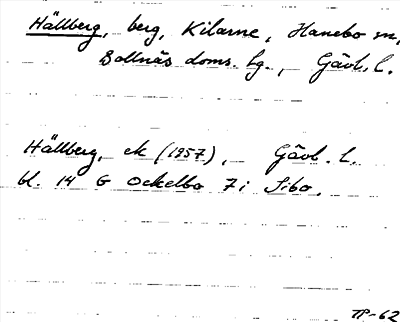 Hällberg, berg, Kilarne, Hanebo sn,
Bollnäs doms. hg., Gävl. l.
Hällberg, ek (1957), Gävl. l.
bl. 14 G Ockelbo 7i Sibo.
TP-62